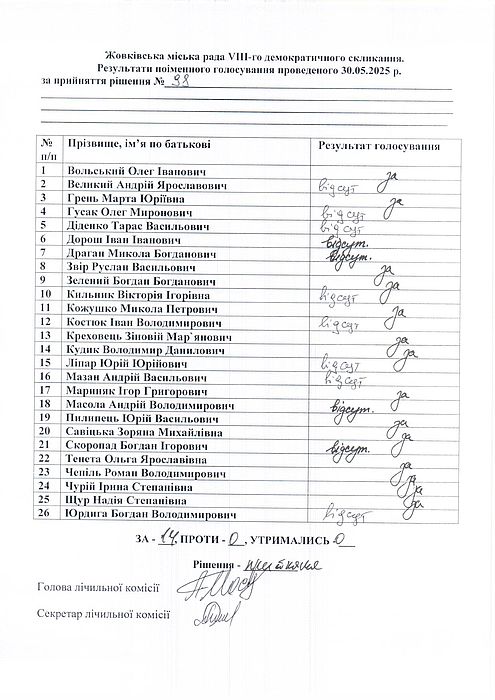 Жовківська міська рада VIII-го демократичного скликання.
Результати поіменного голосування проведеного 30.05.2025 р.
за прийняття рішення № 98
№ п/п Прізвище, ім’я по батькові Результат голосування
1 Вольський Олег Іванович за
2 Великий Андрій Ярославович відсут
3 Грень Марта Юріївна за
4 Гусак Олег Миронович відсут
5 Діденко Тарас Васильович відсут
6 Дорош Іван Іванович відсут.
7 Драган Микола Богданович відсут.
8 Звір Руслан Васильович за
9 Зелений Богдан Богданович за
10 Кильник Вікторія Ігорівна відсут
11 Кожушко Микола Петрович за
12 Костюк Іван Володимирович відсут
13 Креховець Зіновій Мар`янович за
14 Кудик Володимир Данилович за
15 Ліпар Юрій Юрійович відсут
16 Мазан Андрій Васильович відсут
17 Мариняк Ігор Григорович за
18 Масола Андрій Володимирович відсут.
19 Пилипець Юрій Васильович за
20 Савіцька Зоряна Михайлівна за
21 Скоропад Богдан Ігорович відсут.
22 Тенета Ольга Ярославівна за
23 Чепіль Роман Володимирович за
24 Чурій Ірина Степанівна за
25 Щур Надія Степанівна за
26 Юрдига Богдан Володимирович відсут
ЗА - 14, ПРОТИ - 0, УТРИМАЛИСЬ 0
Рішення - прийняте
Голова лічильної комісії
Секретар лічильної комісії